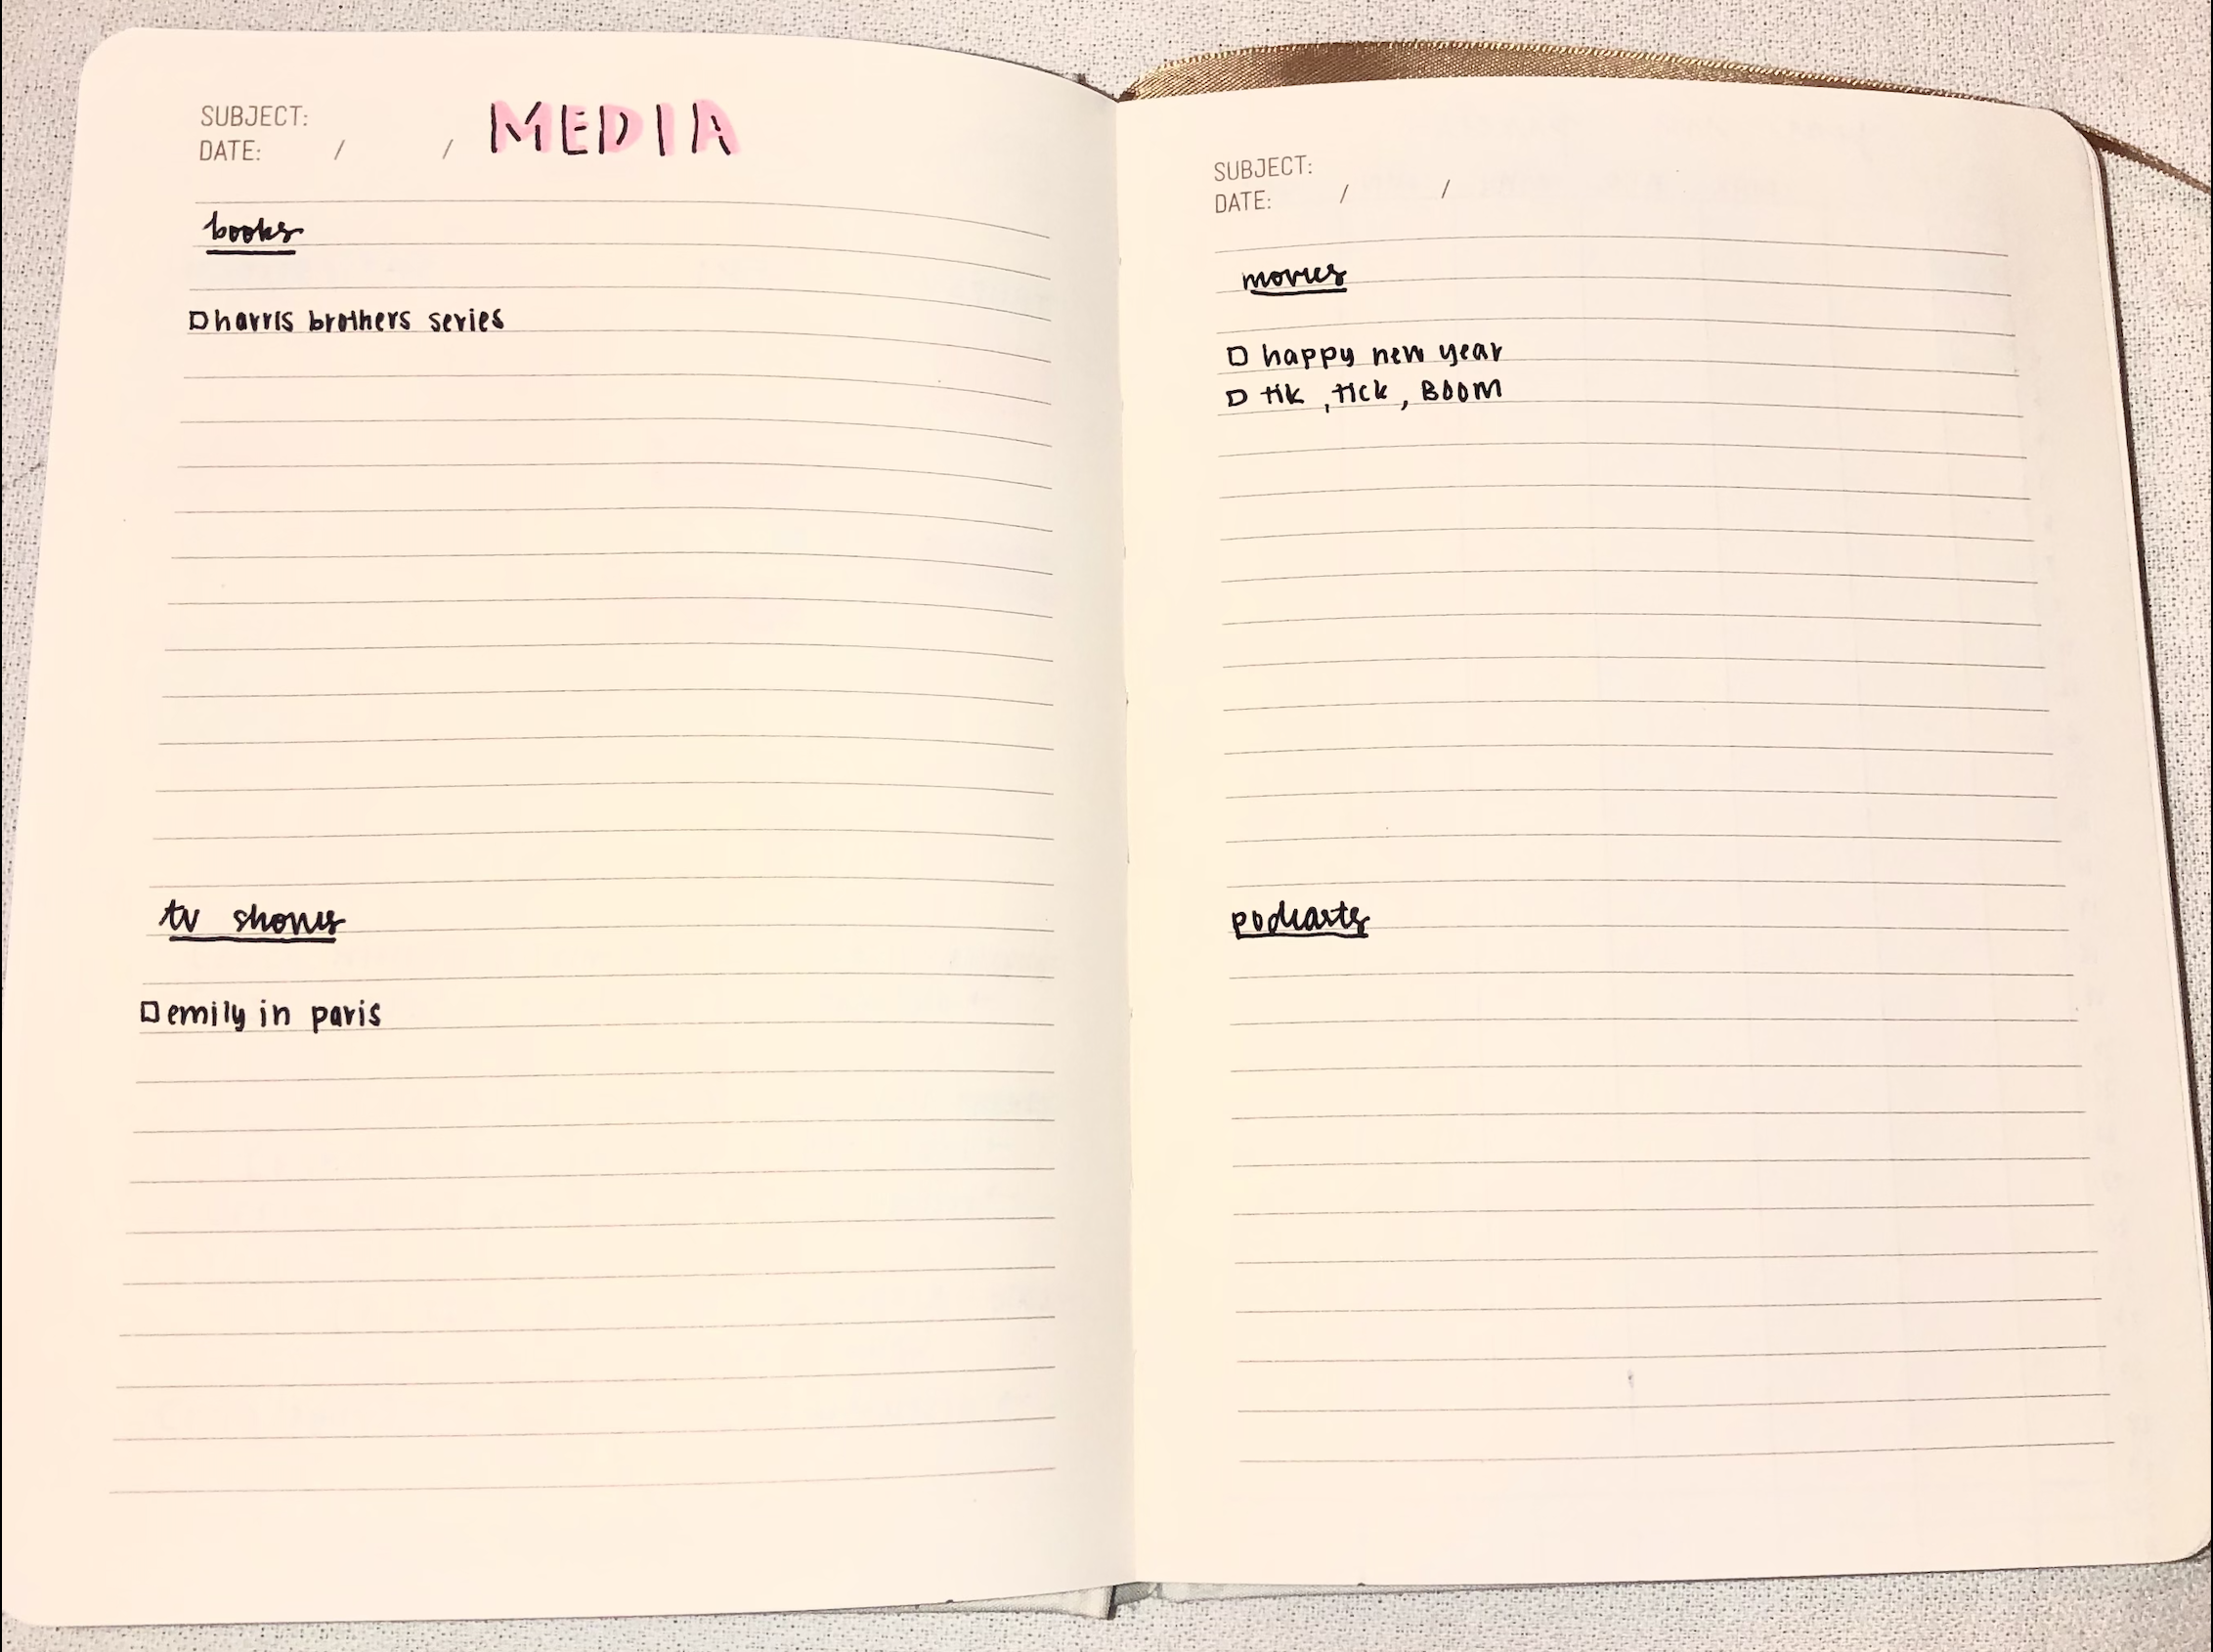 SUBJECT:
DATE: / /
MEDIA
books
harris brothers series
tv shows
emily in paris
SUBJECT:
DATE: / /
movies
happy new year
tik , tick , BOOM
podcasts